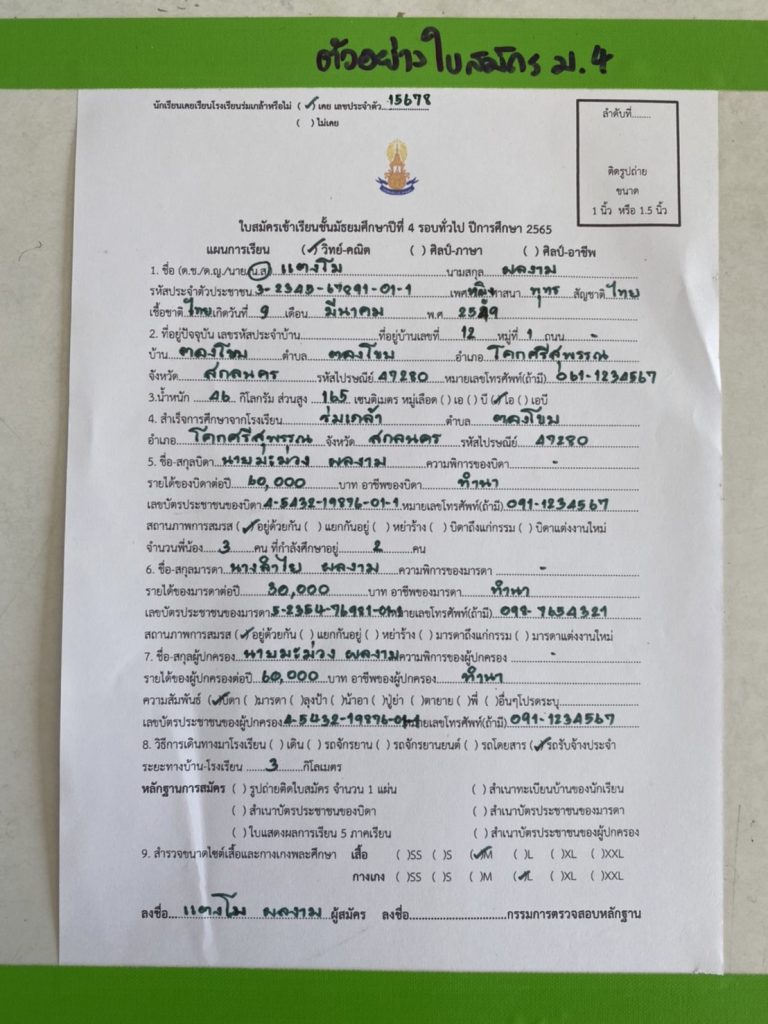 ตัวอย่างใบสมัคร ม.4
นักเรียนเคยเรียนโรงเรียนร่มเกล้าหรือไม่ (✓) เคย เลขประจำตัว...15678
( ) ไม่เคย
ลำดับที่........
ติดรูปถ่าย
ขนาด
1 นิ้ว หรือ 1.5 นิ้ว
ใบสมัครเข้าเรียนชั้นมัธยมศึกษาปีที่ 4 รอบทั่วไป ปีการศึกษา 2565
แผนการเรียน (✓) วิทย์-คณิต ( ) ศิลป์-ภาษา ( ) ศิลป์-อาชีพ
1. ชื่อ (ด.ช./ด.ญ./นาย/น.ส) แตงโม นามสกุล ผลงาม
รหัสประจำตัวประชาชน 3-2345-67891-01-1 เพศ หญิง ศาสนา พุทธ สัญชาติ ไทย
เชื้อชาติ ไทย เกิดวันที่ 9 เดือน มีนาคม พ.ศ. 2549
2. ที่อยู่ปัจจุบัน เลขรหัสประจำบ้าน....................ที่อยู่บ้านเลขที่ 12 หมู่ที่ 1 ถนน -
บ้าน ตลงโขบ ตำบล ตลงโขบ อำเภอ โคกศรีสุพรรณ
จังหวัด สกลนคร รหัสไปรษณีย์ 47280 หมายเลขโทรศัพท์(ถ้ามี) 061-1234567
3.น้ำหนัก 46 กิโลกรัม ส่วนสูง 165 เซนติเมตร หมู่เลือด ( ) เอ ( ) บี (✓) โอ ( ) เอบี
4. สำเร็จการศึกษาจากโรงเรียน ร่มเกล้า ตำบล ตลงโขบ
อำเภอ โคกศรีสุพรรณ จังหวัด สกลนคร รหัสไปรษณีย์ 47280
5. ชื่อ-สกุลบิดา นายมะม่วง ผลงาม ความพิการของบิดา -
รายได้ของบิดาต่อปี 60,000 บาท อาชีพของบิดา ทำนา
เลขบัตรประชาชนของบิดา 4-5432-19876-01-1 หมายเลขโทรศัพท์(ถ้ามี) 091-1234567
สถานภาพการสมรส (✓) อยู่ด้วยกัน ( ) แยกกันอยู่ ( ) หย่าร้าง ( ) บิดาถึงแก่กรรม ( ) บิดาแต่งงานใหม่
จำนวนพี่น้อง 3 คน ที่กำลังศึกษาอยู่ 2 คน
6. ชื่อ-สกุลมารดา นางลำไย ผลงาม ความพิการของมารดา -
รายได้ของมารดาต่อปี 30,000 บาท อาชีพของมารดา ทำนา
เลขบัตรประชาชนของมารดา 5-2354-76981-01-1 หมายเลขโทรศัพท์(ถ้ามี) 098-7654321
สถานภาพการสมรส (✓) อยู่ด้วยกัน ( ) แยกกันอยู่ ( ) หย่าร้าง ( ) มารดาถึงแก่กรรม ( ) มารดาแต่งงานใหม่
7. ชื่อ-สกุลผู้ปกครอง นายมะม่วง ผลงาม ความพิการของผู้ปกครอง -
รายได้ของผู้ปกครองต่อปี 60,000 บาท อาชีพของผู้ปกครอง ทำนา
ความสัมพันธ์ (✓) บิดา ( ) มารดา ( ) ลุงป้า ( ) น้าอา ( ) ปู่ย่า ( ) ตายาย ( ) พี่ ( ) อื่นๆโปรดระบุ
เลขบัตรประชาชนของผู้ปกครอง 4-5432-19876-01-1 หมายเลขโทรศัพท์(ถ้ามี) 091-1234567
8. วิธีการเดินทางมาโรงเรียน ( ) เดิน ( ) รถจักรยาน ( ) รถจักรยานยนต์ ( ) รถโดยสาร (✓) รถรับจ้างประจำ
ระยะทางบ้าน-โรงเรียน 3 กิโลเมตร
หลักฐานการสมัคร ( ) รูปถ่ายติดใบสมัคร จำนวน 1 แผ่น ( ) สำเนาทะเบียนบ้านของนักเรียน
( ) สำเนาบัตรประชาชนของบิดา ( ) สำเนาบัตรประชาชนของมารดา
( ) ใบแสดงผลการเรียน 5 ภาคเรียน ( ) สำเนาบัตรประชาชนของผู้ปกครอง
9. สำรวจขนาดไซต์เสื้อและกางเกงพละศึกษา เสื้อ ( )SS ( )S (✓)M ( )L ( )XL ( )XXL
กางเกง ( )SS ( )S ( )M (✓)L ( )XL ( )XXL
ลงชื่อ แตงโม ผลงาม ผู้สมัคร ลงชื่อ............................กรรมการตรวจสอบหลักฐาน